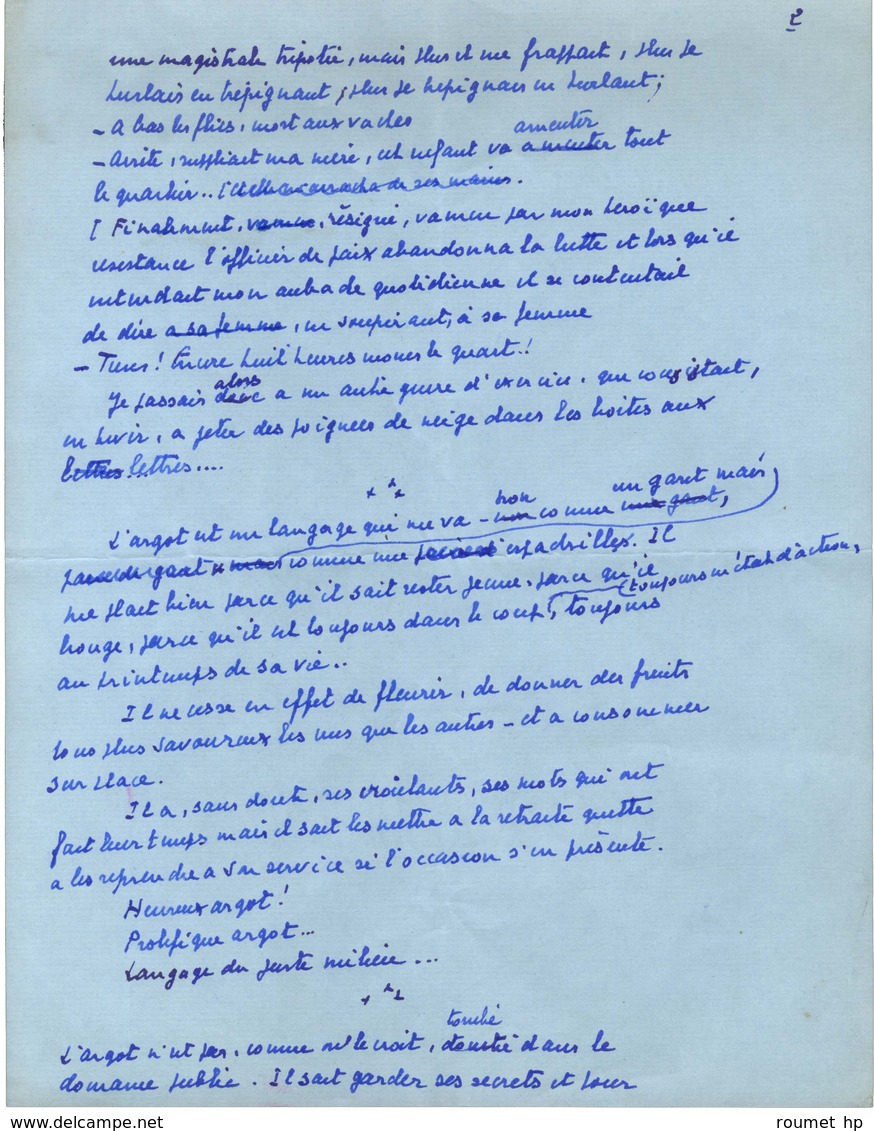 2
une magistrale tripotée, mais plus il me frappait, plus je
hurlais en trépignant, plus je trépignais en hurlant;
- A bas les flics, mort aux vaches
ameuter
- Arrête, suppliait ma mère, cet enfant va ameuter tout
le quartier.. Et elle m'arracha de ses mains.
[ Finalement, vaincu, résigné, vaincu par mon héroïque
résistance l'officier de paix abandonna la lutte et lorsqu'il
entendait mon aubade quotidienne il se contentait
de dire a sa femme, en soupirant, à sa femme
- Tiens! Encore huit heures moins le quart..!
alors
Je passais donc a un autre genre d'exercice. qui consistait,
en hiver, a jeter des poignées de neige dans les boites aux
lettres lettres....
x x x
non un gant mais
L'argot est un langage qui me va - non comme une gant,
comme une d'espadrilles. Il
me plait bien parce qu'il sait rester jeune, parce qu'il
toujours en état d'action,
bouge, parce qu'il est toujours dans le coup, toujours
au printemps de sa vie..
Il ne cesse en effet de fleurir, de donner des fruits
tous plus savoureux les uns que les autres - et a consommer
sur place.
Il a, sans doute, ses croulants, ses mots qui ont
fait leur temps mais il sait les mettre a la retraite quitte
a les reprendre a son service si l'occasion s'en présente.
Heureux argot!
Prolifique argot...
Langage du juste milieu...
x x x
tombé
L'argot n'est pas, comme on le croit, dans le
domaine public. Il sait garder ses secrets et pour
www.delcampe.net
roumet hp